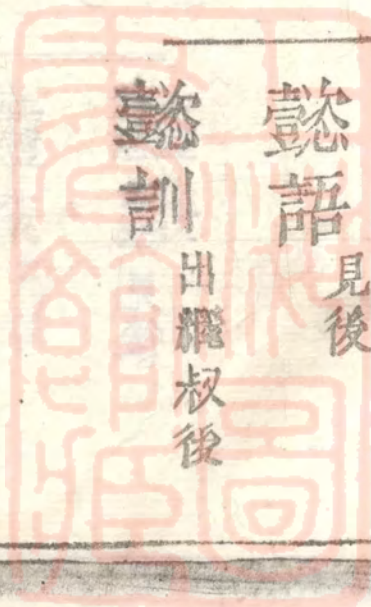 懿語 見後
懿訓 出繼叔後